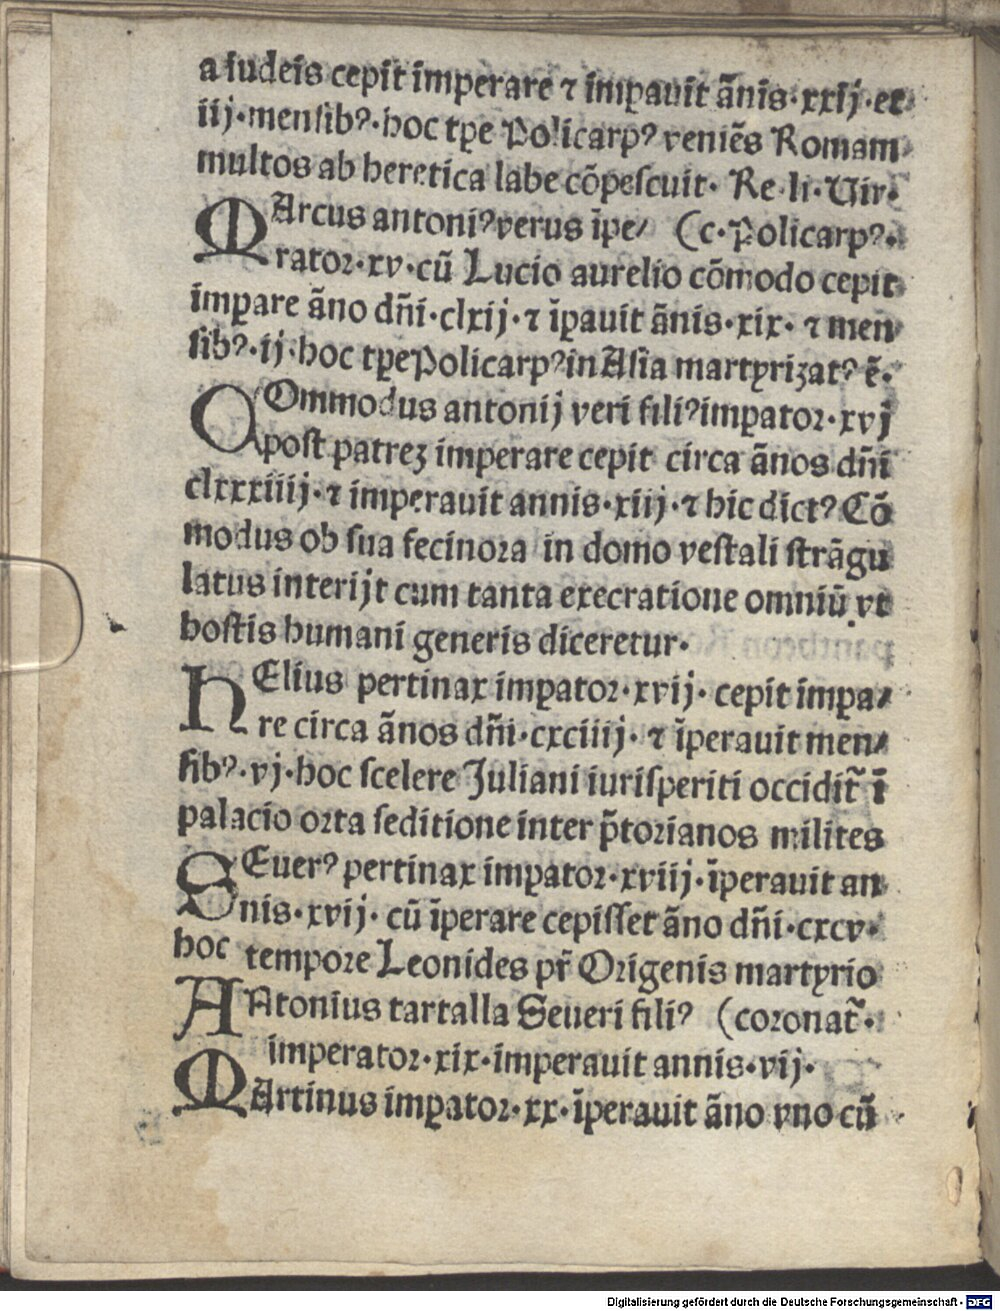 a iudeis cepit imperare ⁊ imꝑauit ãnis·xxij·et
iij·mensibꝰ·hoc tꝑe Policarpꝰ veniẽs Romam
multos ab heretica labe cõpescuit· Re·li·Uir·
MArcus antoniꝰ verus ĩpe/ (c·Policarpꝰ·
rator·xv·cũ Lucio aurelio cõmodo cepit
imꝑare ãno dñi·clxij·⁊ ĩꝑauit ãnis·xix· ⁊ men
sibꝰ·ij·hoc tꝑe Policarpꝰ in Asia martyrizatꝰ ẽ·
COmmodus antonij veri filiꝰ imꝑator·xvj
post patreꝫ imperare cepit circa ãnos dñi
clxxxiiij·⁊ imperauit annis·xiij·⁊ hic dictꝰ Cõ
modus ob sua fecinora in domo vestali strãgu
latus interijt cum tanta execratione omniũ vt
hostis humani generis diceretur·
HElius pertinax imꝑator·xvij· cepit imꝑa/
re circa ãnos dñi·cxciiij· ⁊ ĩperauit men/
sibꝰ·vj·hoc scelere Juliani iurisperiti occidit̃ ĩ
palacio orta seditione inter p̃torianos milites
SEuerꝰ pertinax imꝑator·xviij·ĩperauit an
nis·xvij· cũ ĩperare cepisset ãno dñi·cxcv·
hoc tempore Leonides pr̃ Origenis martyrio
ANtonius tartalla Seueri filiꝰ (coronat̃·
imperator·xix·imperauit annis·vij·
MArtinus imꝑator·xx·ĩperauit ãno vno cũ
Digitalisierung gefördert durch die Deutsche Forschungsgemeinschaft - DFG